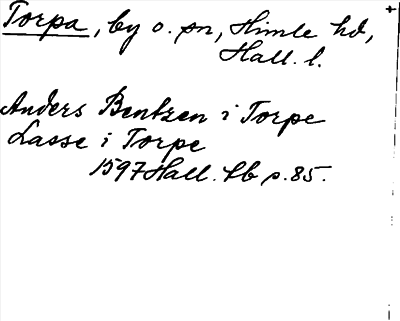 Torpa, by o. sn, Himle hd,
Hall. l.
Anders Bentzen i Torpe
Lasse i Torpe
1597 Hall. lb s. 85.